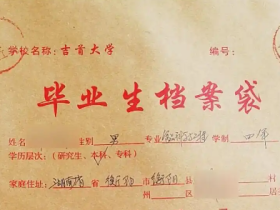 学校名称：吉首大学 编号：
毕业生档案袋
姓名 性别 男 专业 学制 四年
学历层次：（研究生、本科、专科）
家庭住址：湖南省 省 衡阳 市 衡阳 县
州 区